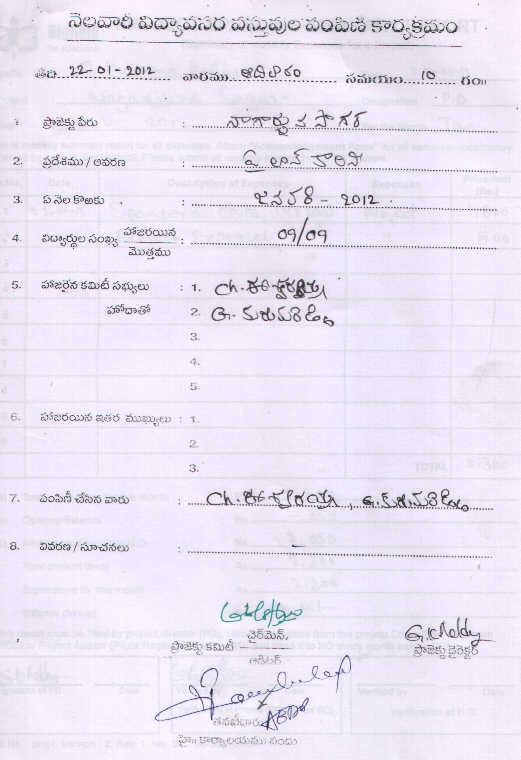 నెలవారీ విద్యావసర వస్తువుల పంపిణీ కార్యక్రమం
తేది 22-01-2012 వారము ఆదివారం సమయం 10 గం॥
1. ప్రాజెక్టు పేరు : నాగార్జున సాగర్
2. ప్రదేశము / ఆవరణ : పైలాన్ కాలని
3. ఏ నెల కొఱకు : జనవరి - 2012
4. విద్యార్థుల సంఖ్య హాజరయిన / మొత్తము : 09/09
5. హాజరైన కమిటీ సభ్యులు : 1. Ch. ఈశ్వరయ్య
హోదాతో 2. G. కరుణరెడ్డి
3.
4.
5.
6. హాజరయిన ఇతర ముఖ్యులు : 1.
2.
3.
7. పంపిణీ చేసిన వారు : Ch. ఈశ్వరయ్య, G. కరుణరెడ్డి
8. వివరణ / సూచనలు : –
చైర్‌మెన్,
ప్రాజెక్టు కమిటీ
ఆడిటర్
ప్రాజెక్టు డైరెక్టర్
తనిఖీదారు
హై॥ కార్యాలయము నందు